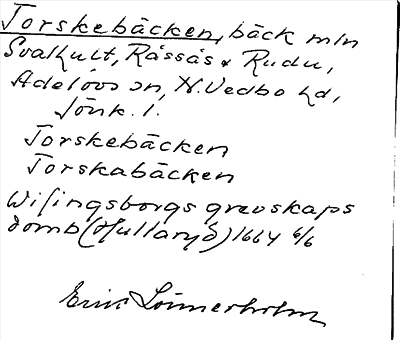 Torskebäcken, bäck mln
Svalhult, Råssås & Rudu,
Adelövs sn, N. Vedbo hd,
Jönk. l.
Torskebäcken
Torskabäcken
Wisingsborgs grevskaps
domb (Hullaryd) 1664 6/6
Eric Lönnerholm